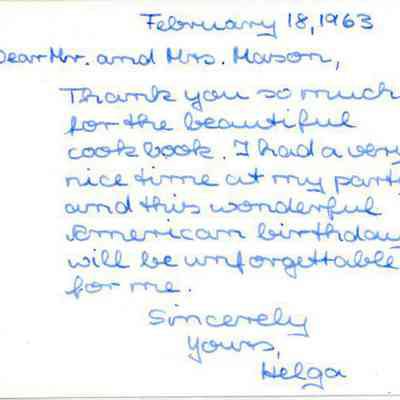 February 18, 1963
Dear Mr. and Mrs. Mason,
Thank you so much
for the beautiful
cook book. I had a very
nice time at my party
and this wonderful
American birthday
will be unforgettable
for me.
Sincerely
yours,
Helga